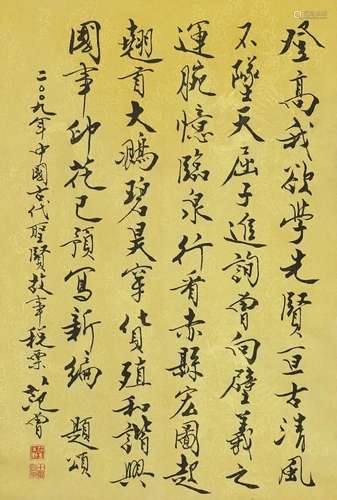 登高我欲學先賢亘古清風
不墜天屈子進詢曾向壁義之
運腕憶臨泉行看赤縣宏圖起
翹首大鵬碧昊穿貨殖和諧興
國事印花已預寫新編 題頌
二〇〇九年中國古代聖賢故事稅票 范曾